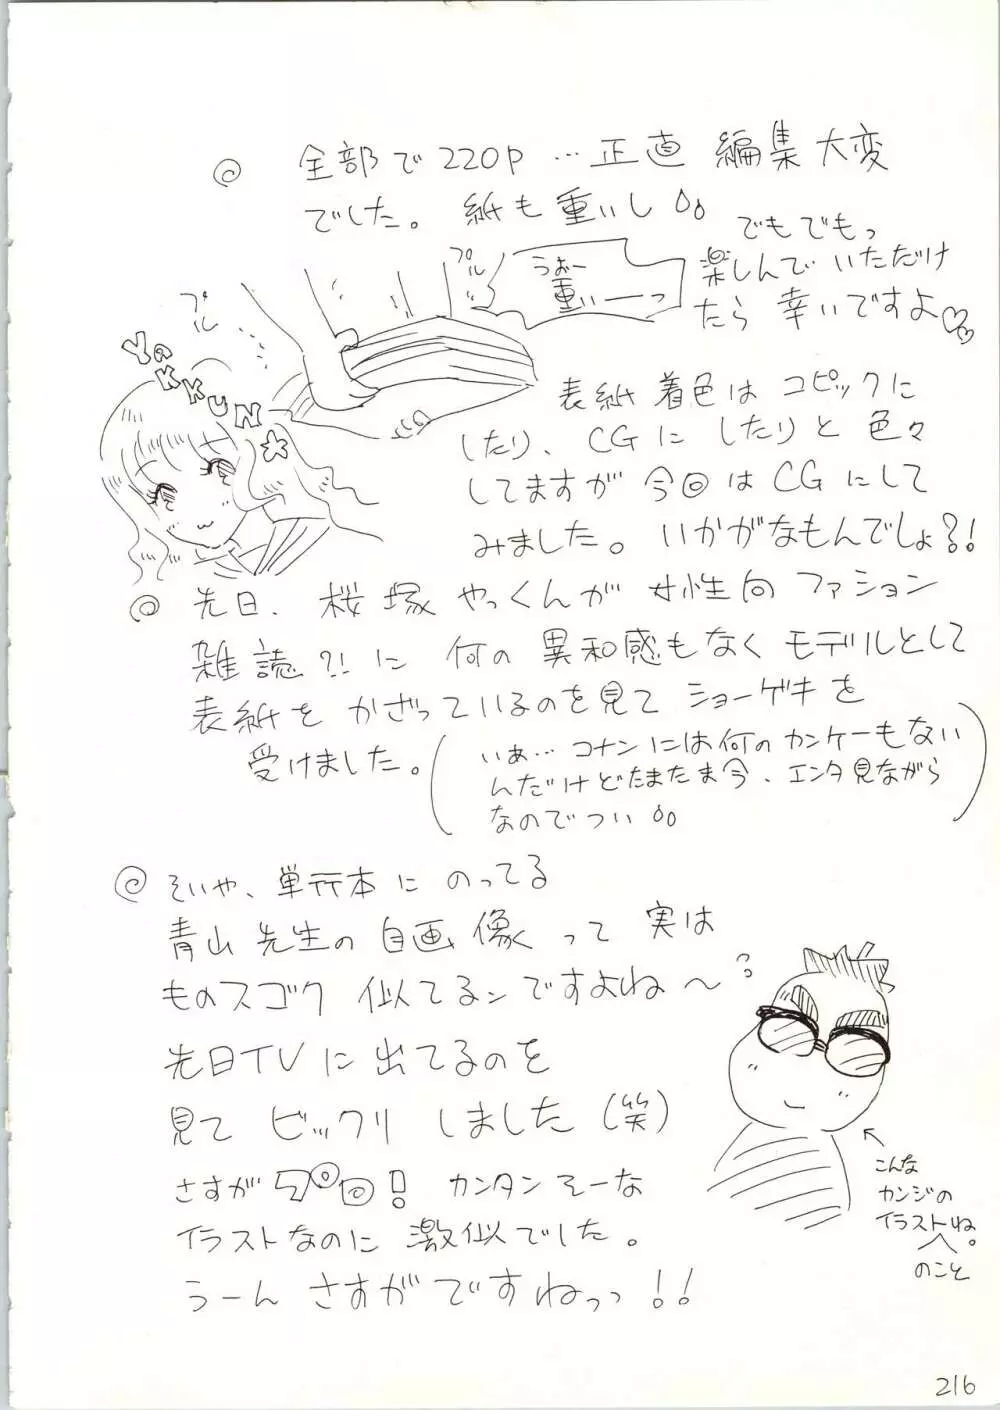 ◎ 全部で220P…正直 編集大変
でした。紙も重いし
でもでもっ
楽しんでいただけ
たら 幸いですよ♡♡
プル
うおー
重いーっ
プル
YAKKUN☆
表紙着色は コピックに
したり、CGに したりと 色々
してますが 今回はCGにして
みました。 いかがなもんでしょ?!
◎ 先日、桜塚 やっくんが 女性向 ファション
雑誌?!に 何の 異和感もなく モデルとして
表紙を かざっているのを見て ショーゲキを
受けました。
(いあ…コナンには何のカンケーもない
んだけどたまたま今、エンタ見ながら
なのでつい)
◎ そいや、単行本に のってる
青山先生の 自画像って 実は
ものスゴク 似てるンですよね〜?
先日TVに出てるのを
見て ビックリ しました(笑)
さすがプロ! カンタンそーな
イラストなのに 激似でした。
うーん さすがですねっっ!!
こんな
カンジの
イラストね。
のこと
216